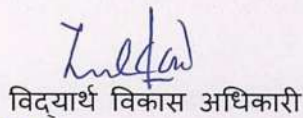 विद्यार्थ विकास अधिकारी